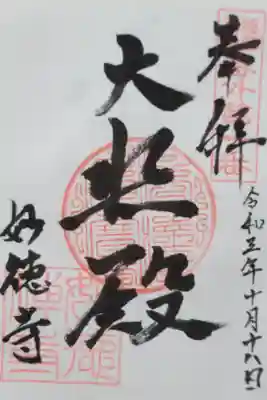 奉拝
令和三年十月十八日
大悲殿
妙徳寺